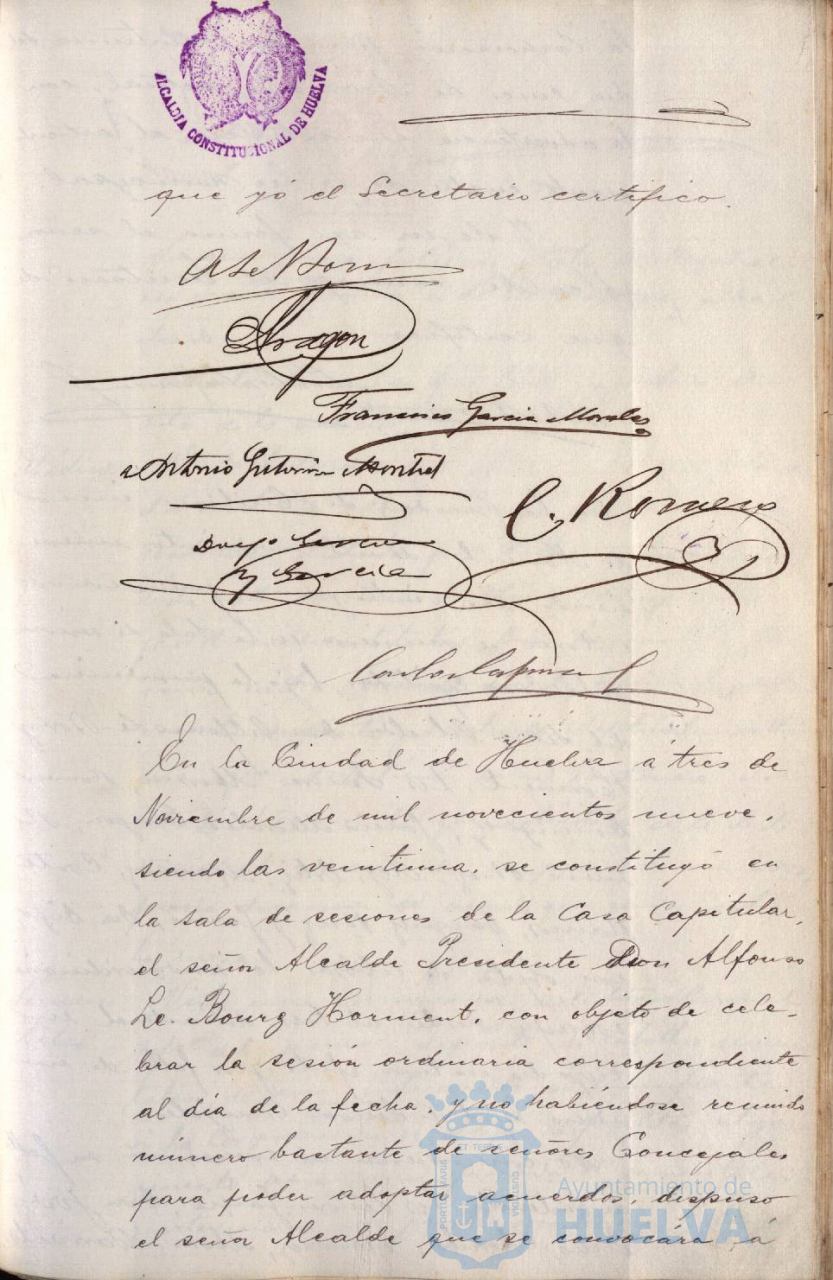 ALCALDIA CONSTITUCIONAL DE HUELVA
que yó el Secretario certifico.
Aragon
Francisco Garcia Morales
Antonio
C. Romero
Diego Garcia
y Garcia
Carlos
En la Ciudad de Huelva á tres de
Noviembre de mil novecientos nueve,
siendo las veintiuna, se constituyó en
la sala de sesiones de la Casa Capitular,
el señor Alcalde Presidente Don Alfonso
Le. Bourg Horment, con objeto de cele-
brar la sesión ordinaria correspondiente
al día de la fecha, y no habiéndose reunido
número bastante de señores Concejales
para poder adoptar acuerdos, dispuso
el señor Alcalde que se convocára á
Ayuntamiento de
HUELVA